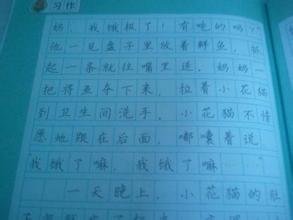 习作
奶，我饿极了！有吃的吗？
他一见盘子里放着鲜鱼，抓
起一条就往嘴里送，奶奶一
把将鱼夺下来，拉着小花猫
到卫生间洗手，小花猫不情
愿地跟在后面，嘟囔着说
我饿了嘛，我饿了嘛。
一天晚上，小花猫的肚